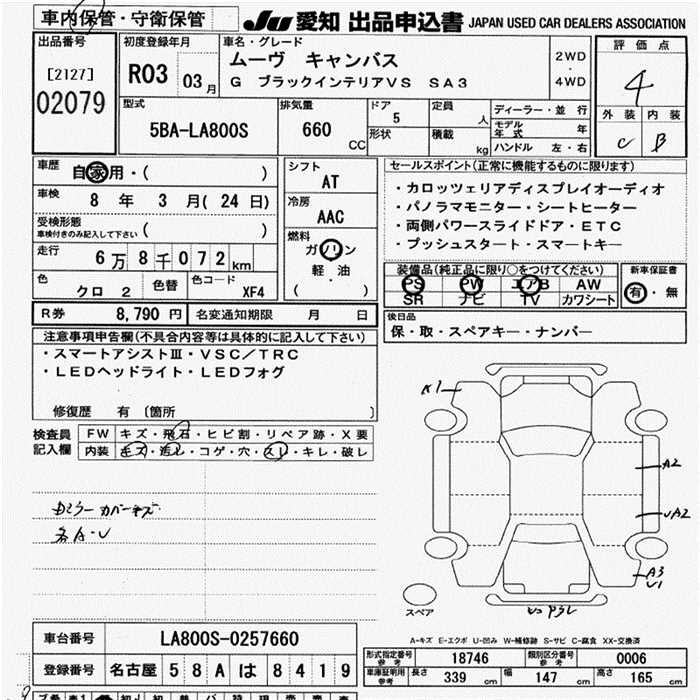 車内保管・守衛保管
JU 愛知 出品申込書 JAPAN USED CAR DEALERS ASSOCIATION
出品番号
[2127]
02079
初度登録年月
R03 03月
車名・グレード
ムーヴ キャンバス
G ブラックインテリアVS SA3
2WD
・
4WD
評価点
4
外装 内装
C B
型式
5BA-LA800S
排気量
660
CC
ドア
5
形状
定員
人
積載
kg
ディーラー・並行
モデル年式 年
ハンドル 左・右
車歴
自家用・( )
車検
8年 3月(24日)
受検形態
車検付きのみ記入して下さい ( )
走行
6万8千072km
色
クロ 2
色替
色コード
XF4
シフト
AT
冷房
AAC
燃料
ガソリン
軽・油
( )
セールスポイント(正常に機能するものに限ります)
・カロッツェリアディスプレイオーディオ
・パノラマモニター・シートヒーター
・両側パワースライドドア・ETC
・プッシュスタート・スマートキー
装備品(純正品に限り○をつけてください)
PS PW エアB AW
SR ナビ TV カワシート
新車保証書
有・無
R券 8,790円
名変通知期限 月 日
後日品
保・取・スペアキー・ナンバー
注意事項申告欄(不具合内容等は具体的に記入して下さい)
・スマートアシストⅢ・VSC/TRC
・LEDヘッドライト・LEDフォグ
修復歴 有〔箇所 〕
検査員
記入欄
FW キズ・飛石・ヒビ割・リペア跡・X要
内装 キズ・汚れ・コゲ・穴・スレ・キレ・破レ
A1
A2
UA2
A3
U1
スペア
A-キズ E-エクボ U-凹み W-補修跡 S-サビ C-腐食 XX-交換済
車台番号
LA800S-0257660
登録番号
名古屋 58Aは8419
形式指定番号
参考
18746
類別区分番号
参考
0006
車庫証明用
参考
長さ 339cm 幅 147cm 高さ 165cm